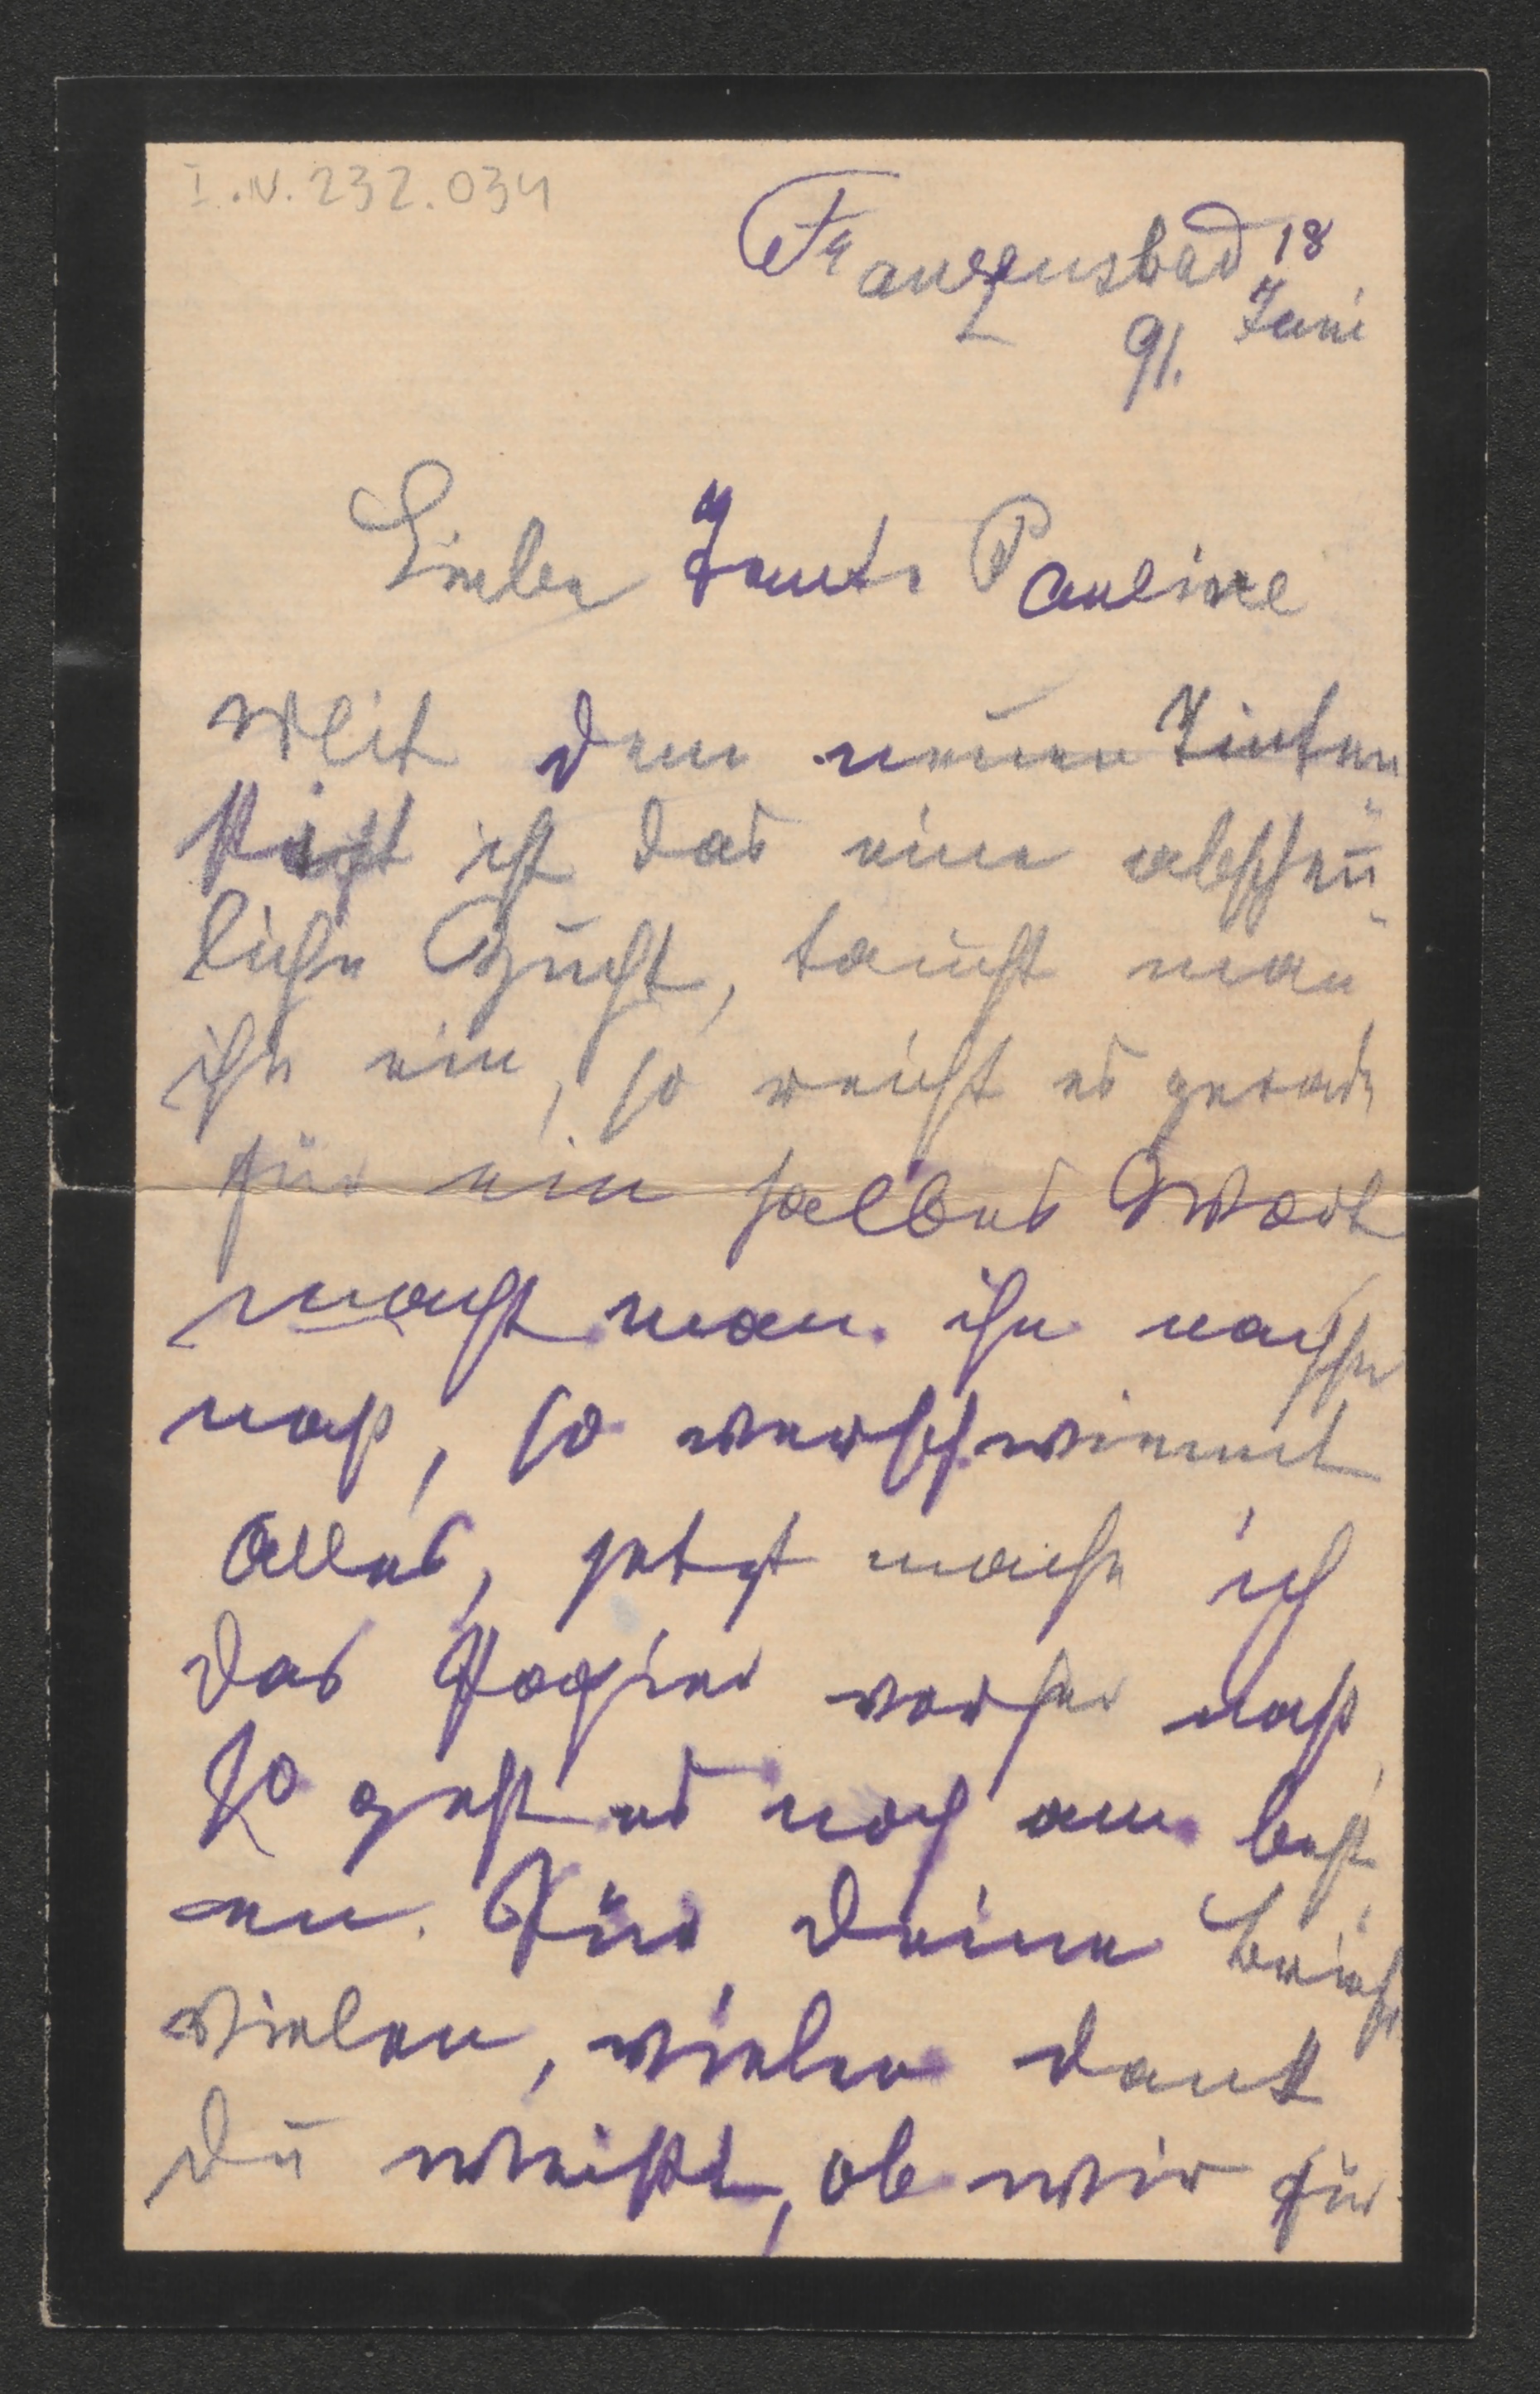 I.N. 232.034
Franzensbad 18
Juni
91.
Liebe Tante Pauline
Mit dem neuen Tinten
stift ist das eine abscheu
liche Zucht, taucht man
ihn ein, so reicht es gerade
für ein halbes Wort
macht man ihn nachher
naß, so verschwimmt
alles, jetzt mache ich
das Papier vorher naß,
so geht es noch am best
en. Für Deine Briefe
vielen, vielen dank
Du weißt, ob wir für